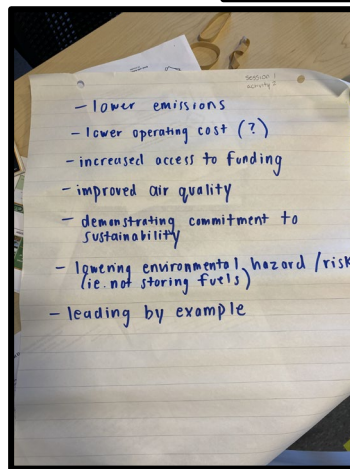 session 1
activity 2
- lower emissions
- lower operating cost (?)
- increased access to funding
- improved air quality
- demonstrating commitment to
sustainability
- lowering environmental hazard/risk
(ie. not storing fuels)
- leading by example